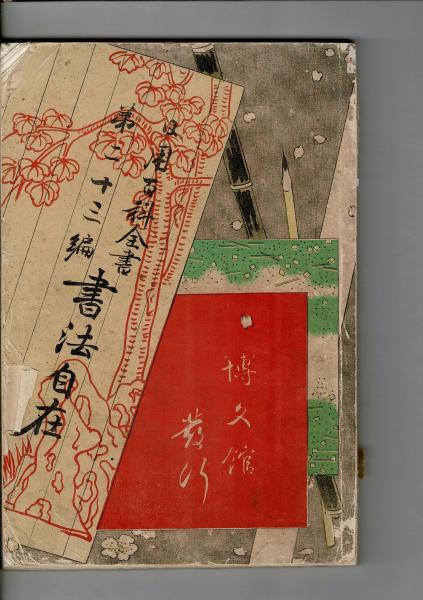 日用百科全書
第二十三編
書法自在
博文館
發行